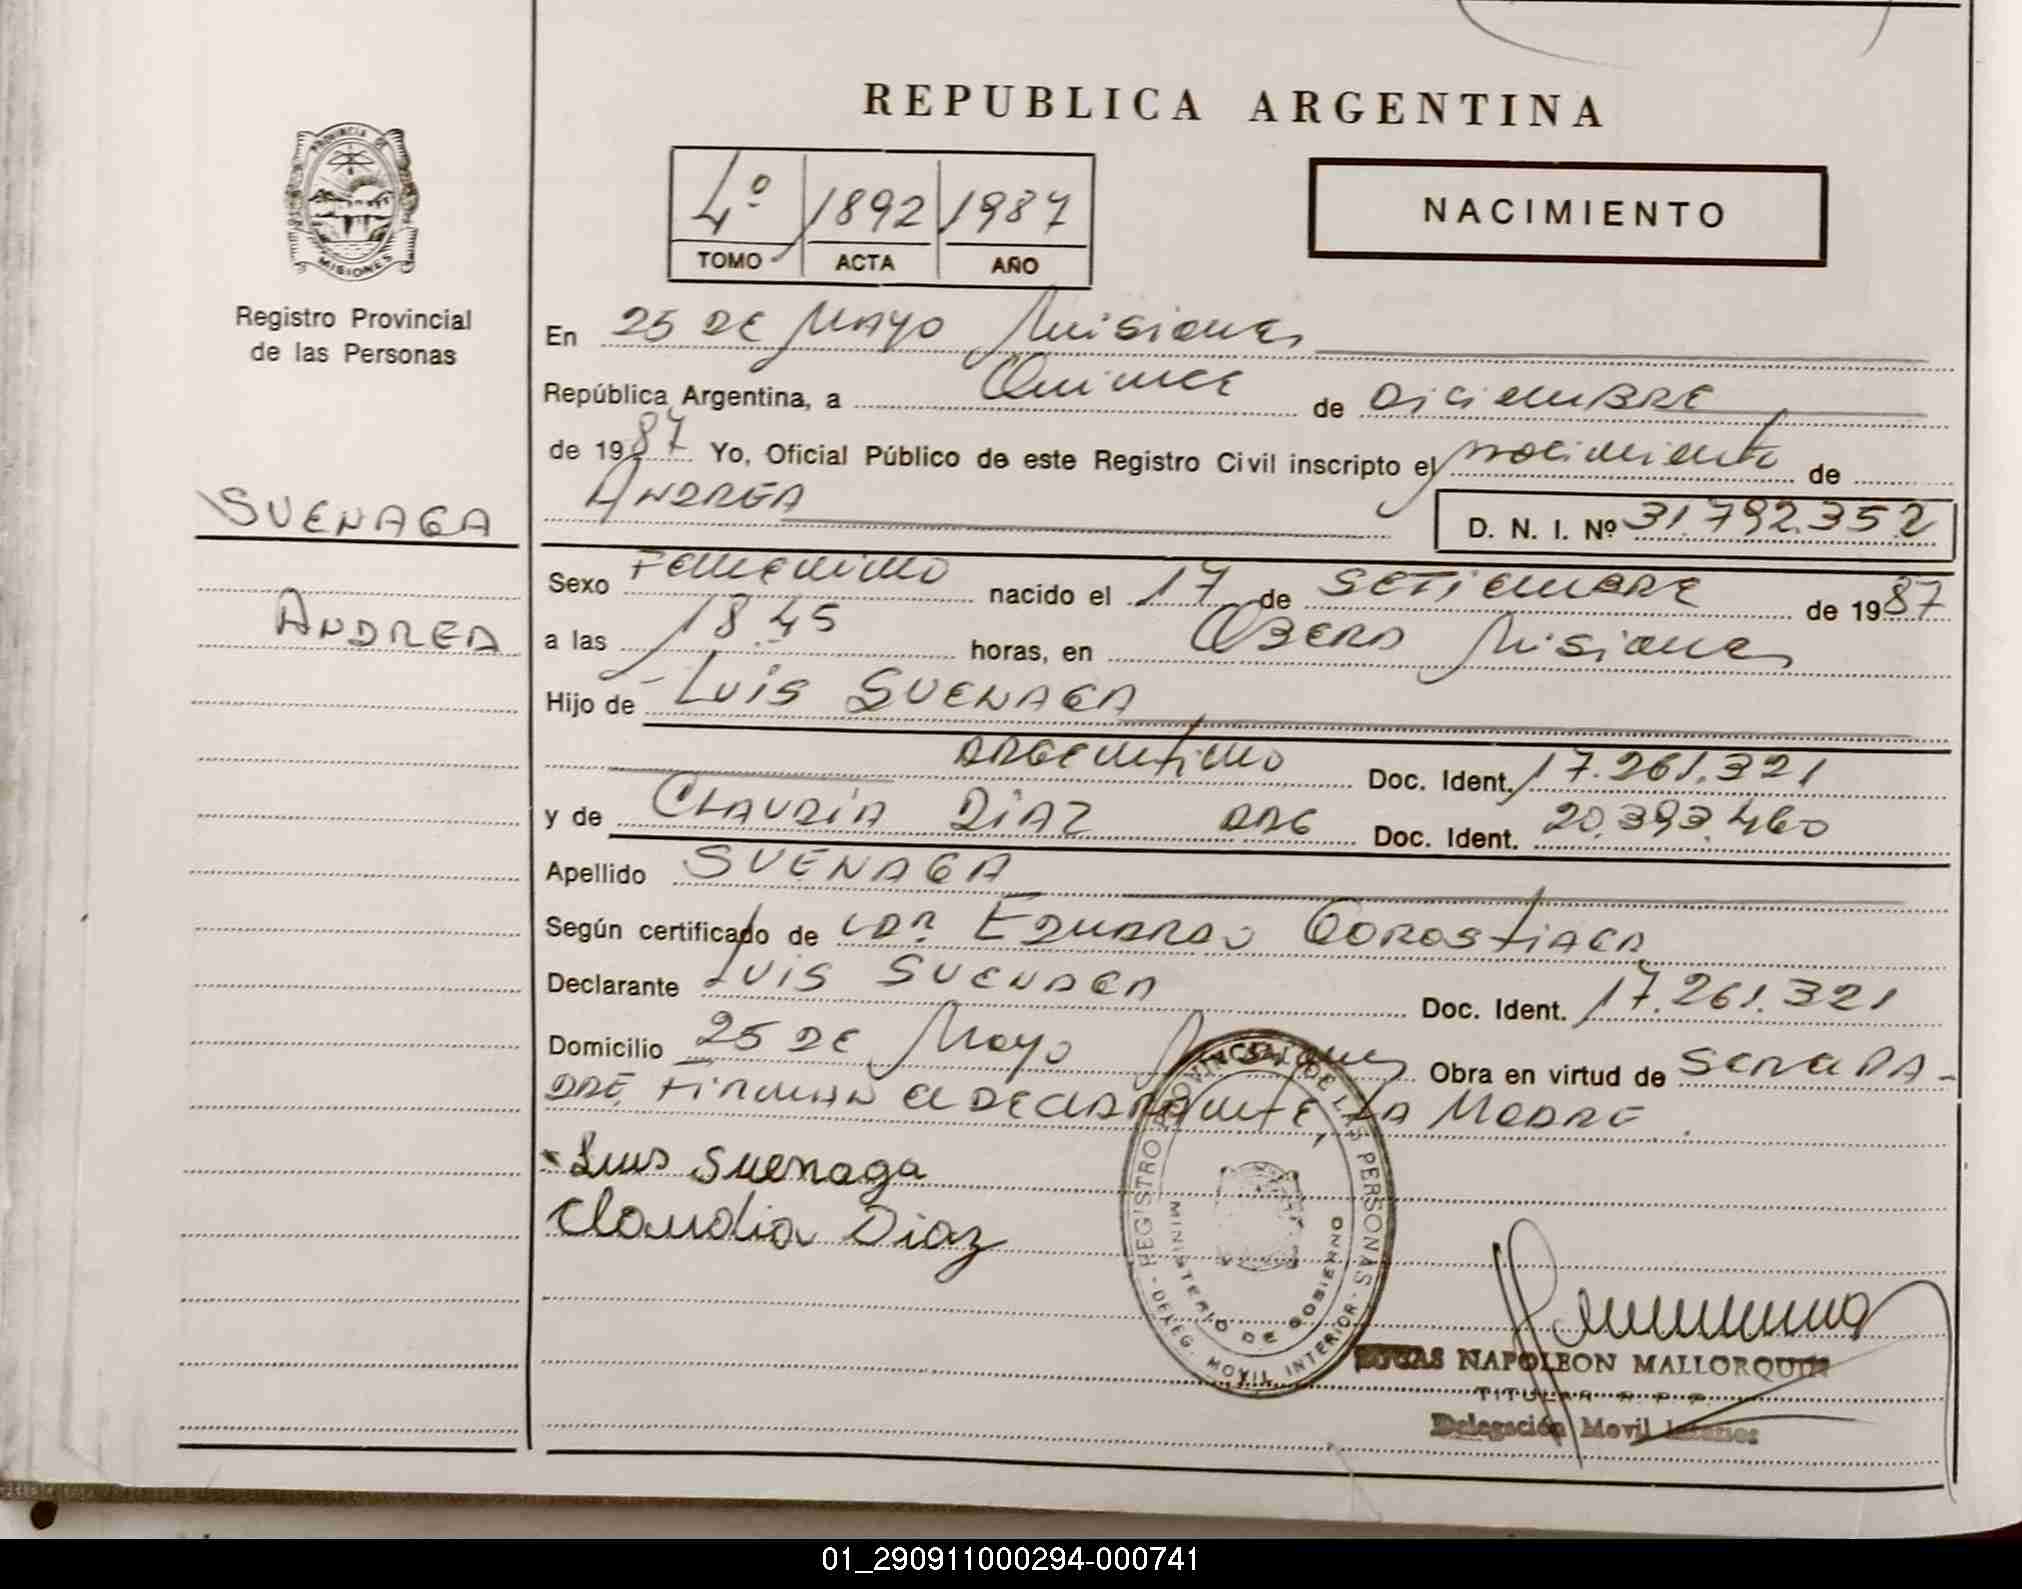 REPUBLICA ARGENTINA
PROVINCIA DE
MISIONES
Registro Provincial
de las Personas
4º 1892 1987
TOMO ACTA AÑO
NACIMIENTO
En 25 DE MAYO Misiones
República Argentina, a Quince de DiciemBRE
de 1987 Yo, Oficial Público de este Registro Civil inscripto el nacimiento de
ANDREA D. N. I. Nº 31.792.352
SUENAGA
ANDREA
Sexo Femenino nacido el 17 de SETiemBRE de 1987
a las 18.45 horas, en OBERA Misiones
Hijo de LUIS SUENAGA
ARGentino Doc. Ident. 17.261.321
y de CLAUDIA DIAZ ARG Doc. Ident. 20.393.460
Apellido SUENAGA
Según certificado de EDUARDO GOROSTIAGA
Declarante LUIS SUENAGA Doc. Ident. 17.261.321
Domicilio 25 DE Mayo Misiones Obra en virtud de SER el PA-
DRE, FIRMAN el DEClARANTE, LA MADRE.
Luis Suenaga
Claudia Diaz
REGISTRO PROVINCIAL DE LAS PERSONAS - DELEG. MOVIL INTERIOR -
MINISTERIO DE GOBIERNO
LUCAS NAPOLEON MALLORQUIN
TITULAR R. P. P.
Delegación Movil Interior
01_290911000294-000741